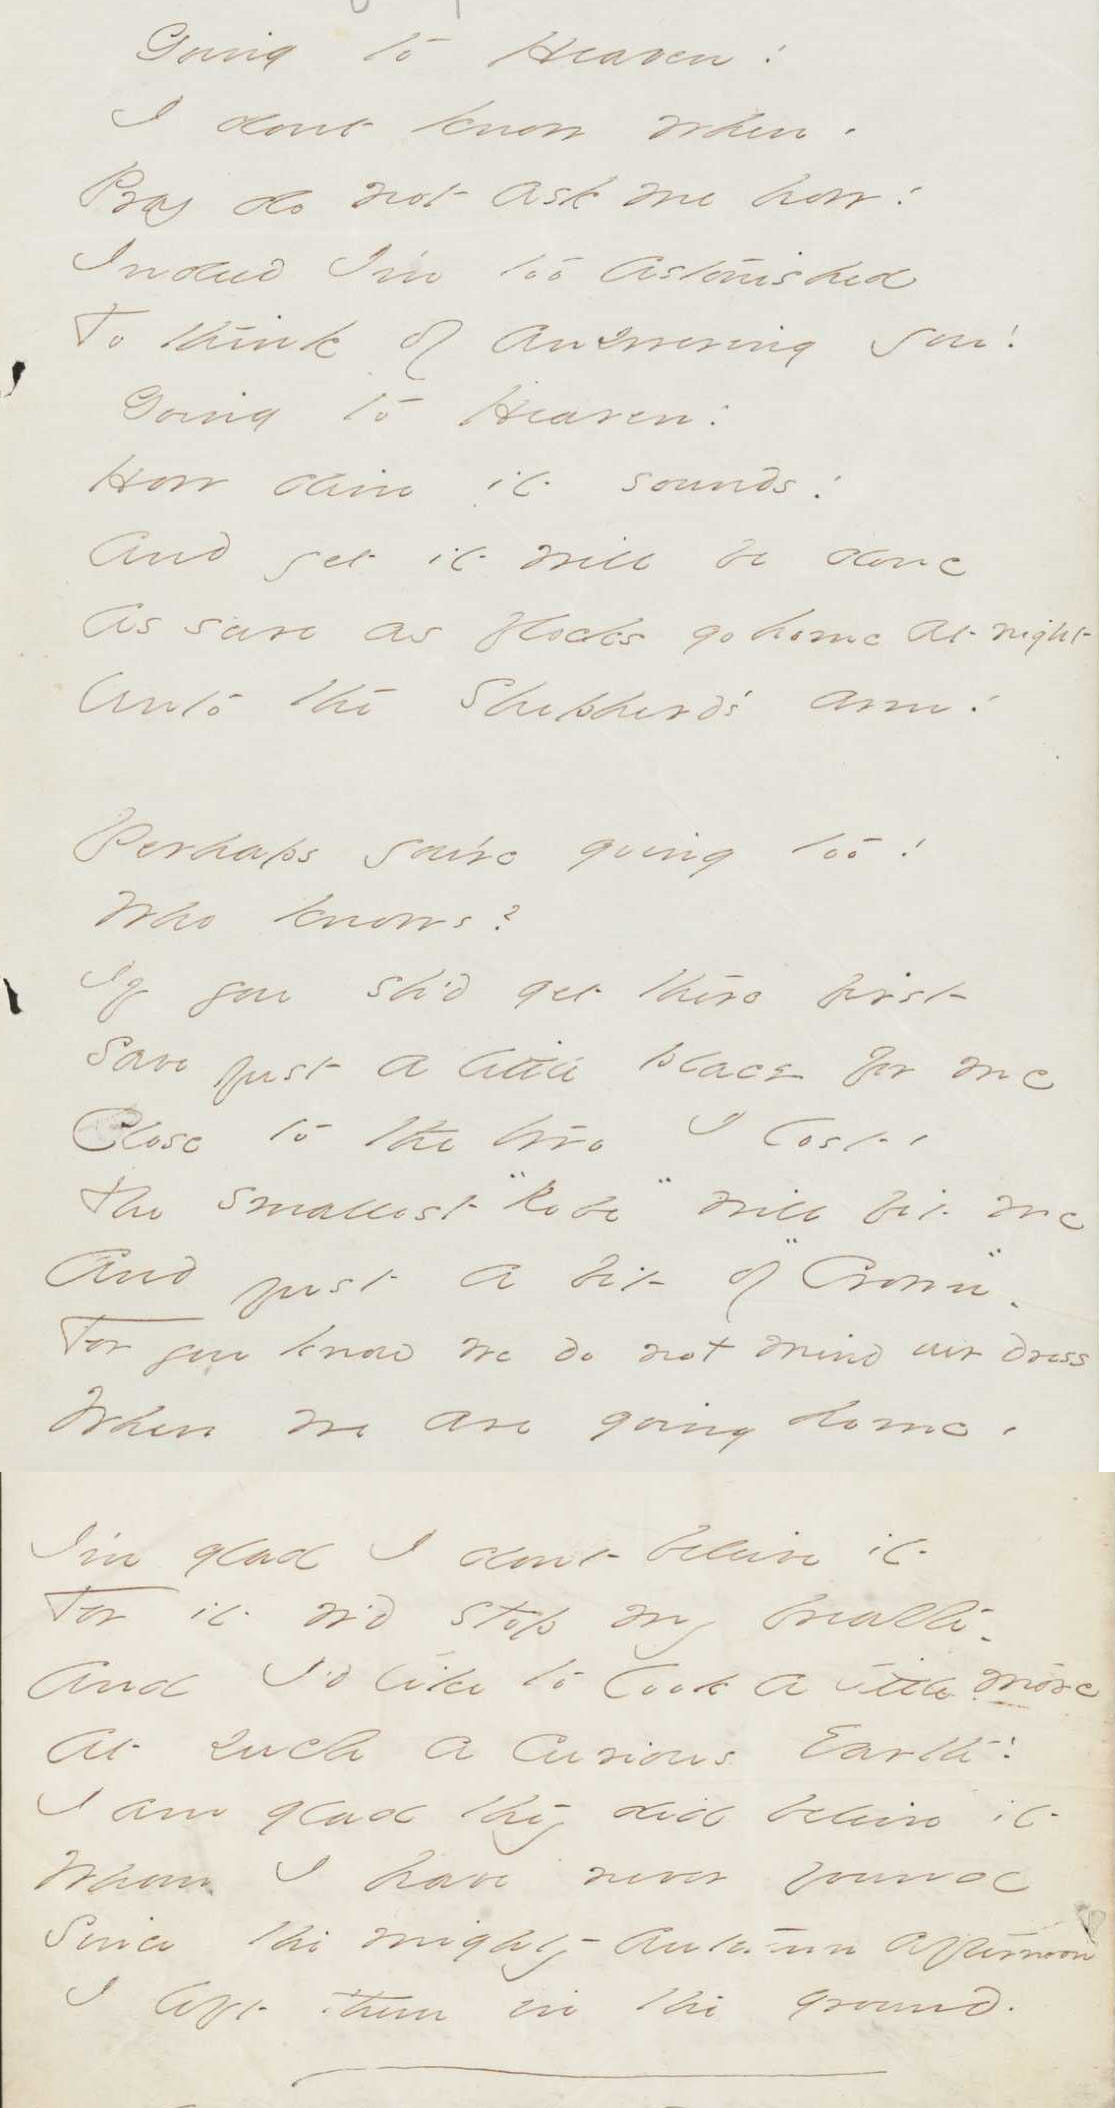 Going to Heaven!
I dont know when.
Pray do not ask me how!
Indeed I'm too astonished
To think of answering you!
Going to Heaven!
How dim it sounds!
And yet it will be done
As sure as flocks go home at night
Unto the Shepherd's arm!
Perhaps you're going too!
Who knows?
If you sh'd get there first
Save just a little place for me
Close to the two I lost.
The smallest "Robe" will fit me
And just a bit of "Crown".
For you know we do not mind our dress
When we are going home.
I'm glad I dont believe it
For it w'd stop my breath.
And I'd like to look a little more
At such a curious Earth!
I am glad they did believe it
Whom I have never found
Since the mighty autumn afternoon
I left them in the ground.